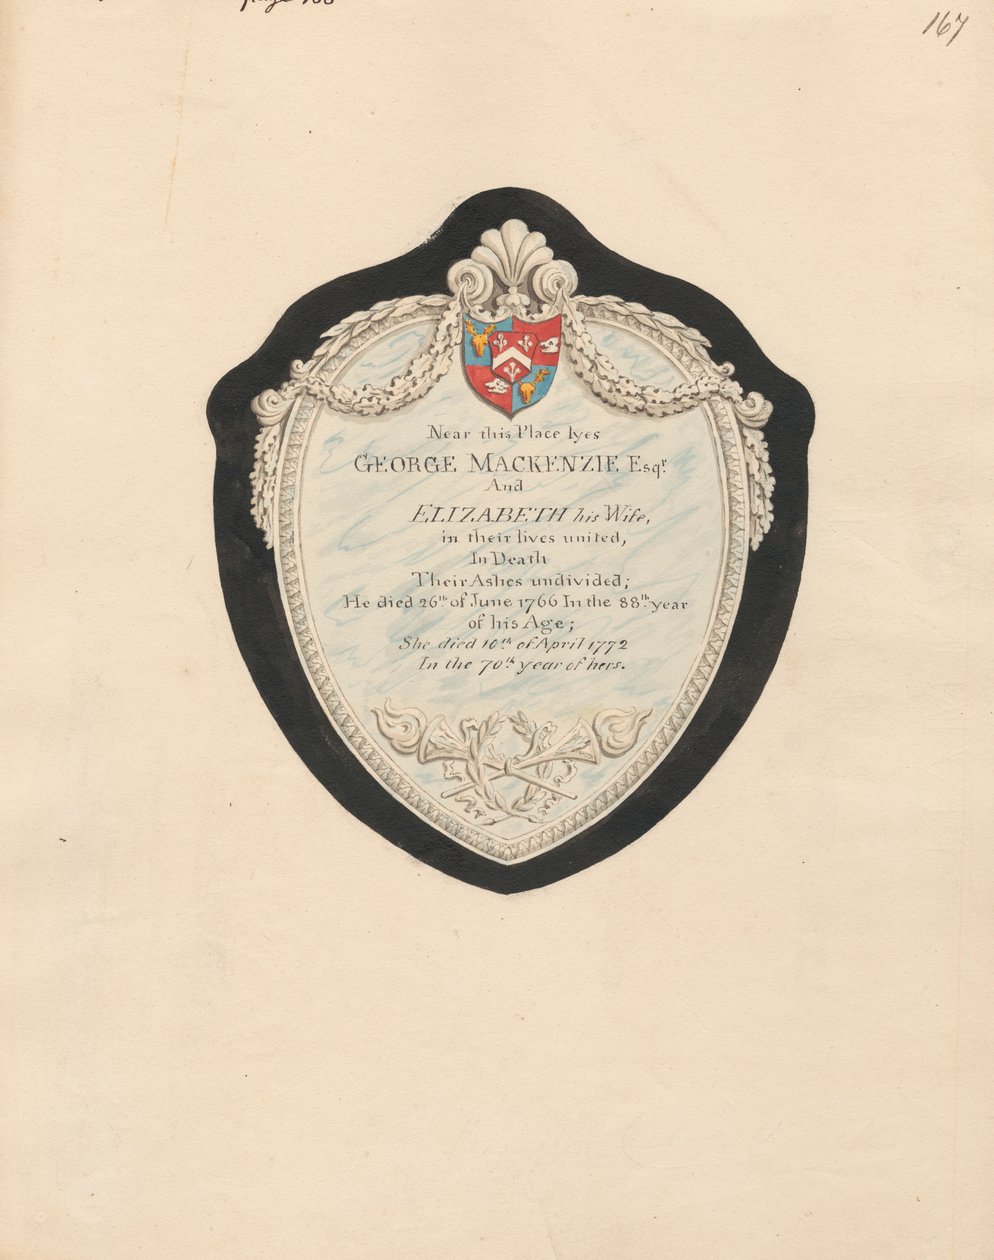 page 100
167
Near this Place lyes
GEORGE MACKENZIE Esqr
And
ELIZABETH his Wife,
in their lives united,
In Death
Their Ashes undivided;
He died 26th of June 1766 In the 88th year
of his Age;
She died 10th of April 1772
In the 70th year of hers.